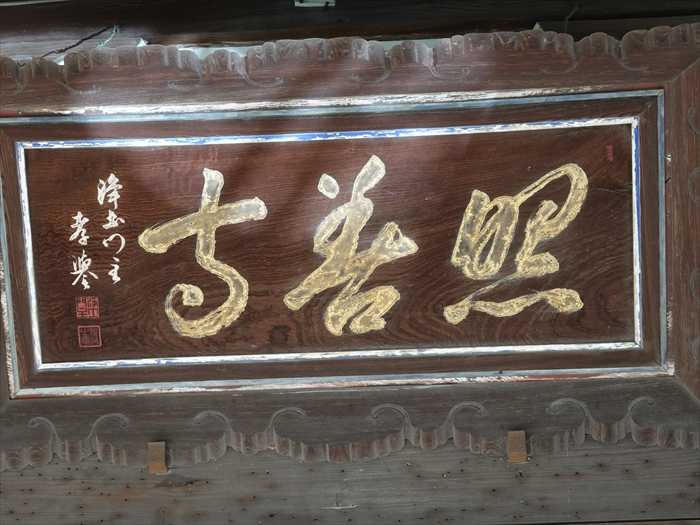 照善寺
浄土门主
孝譽